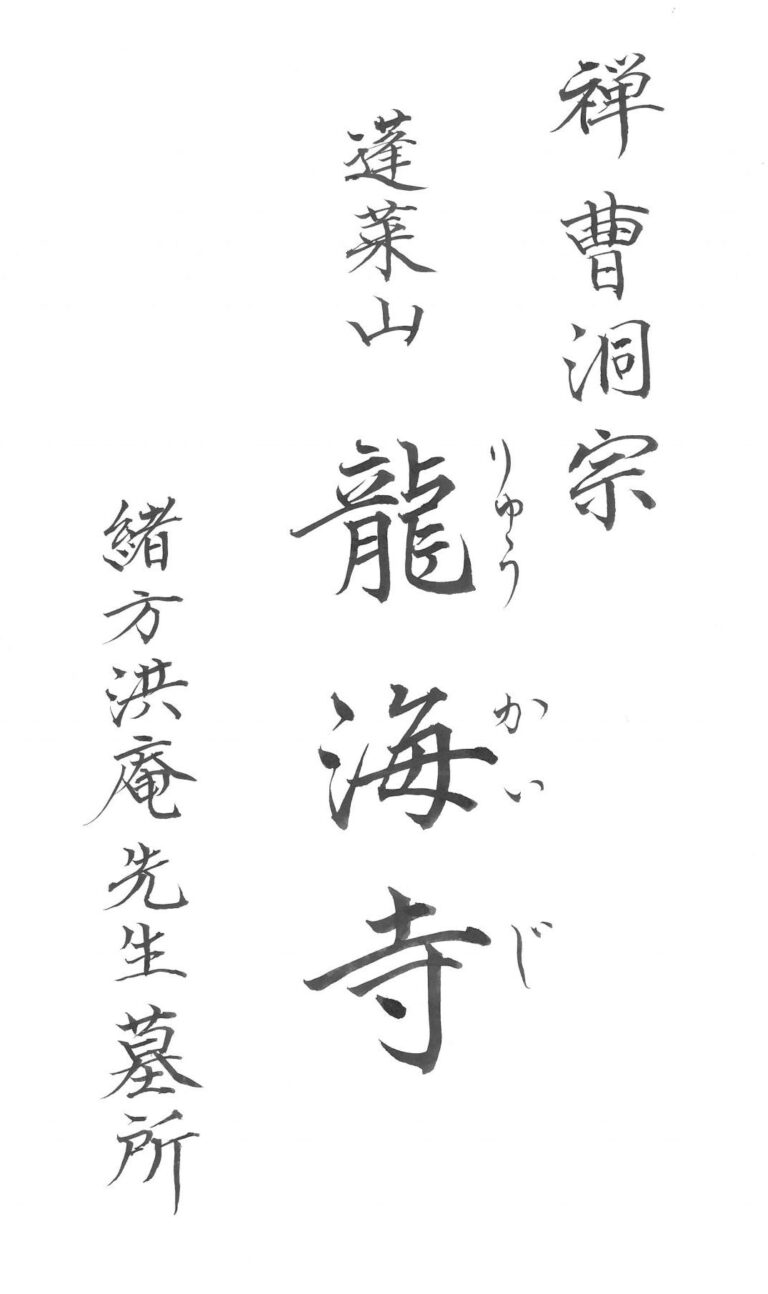 禅曹洞宗
りゅうかいじ
蓬莱山 龍海寺
緒方洪庵先生墓所